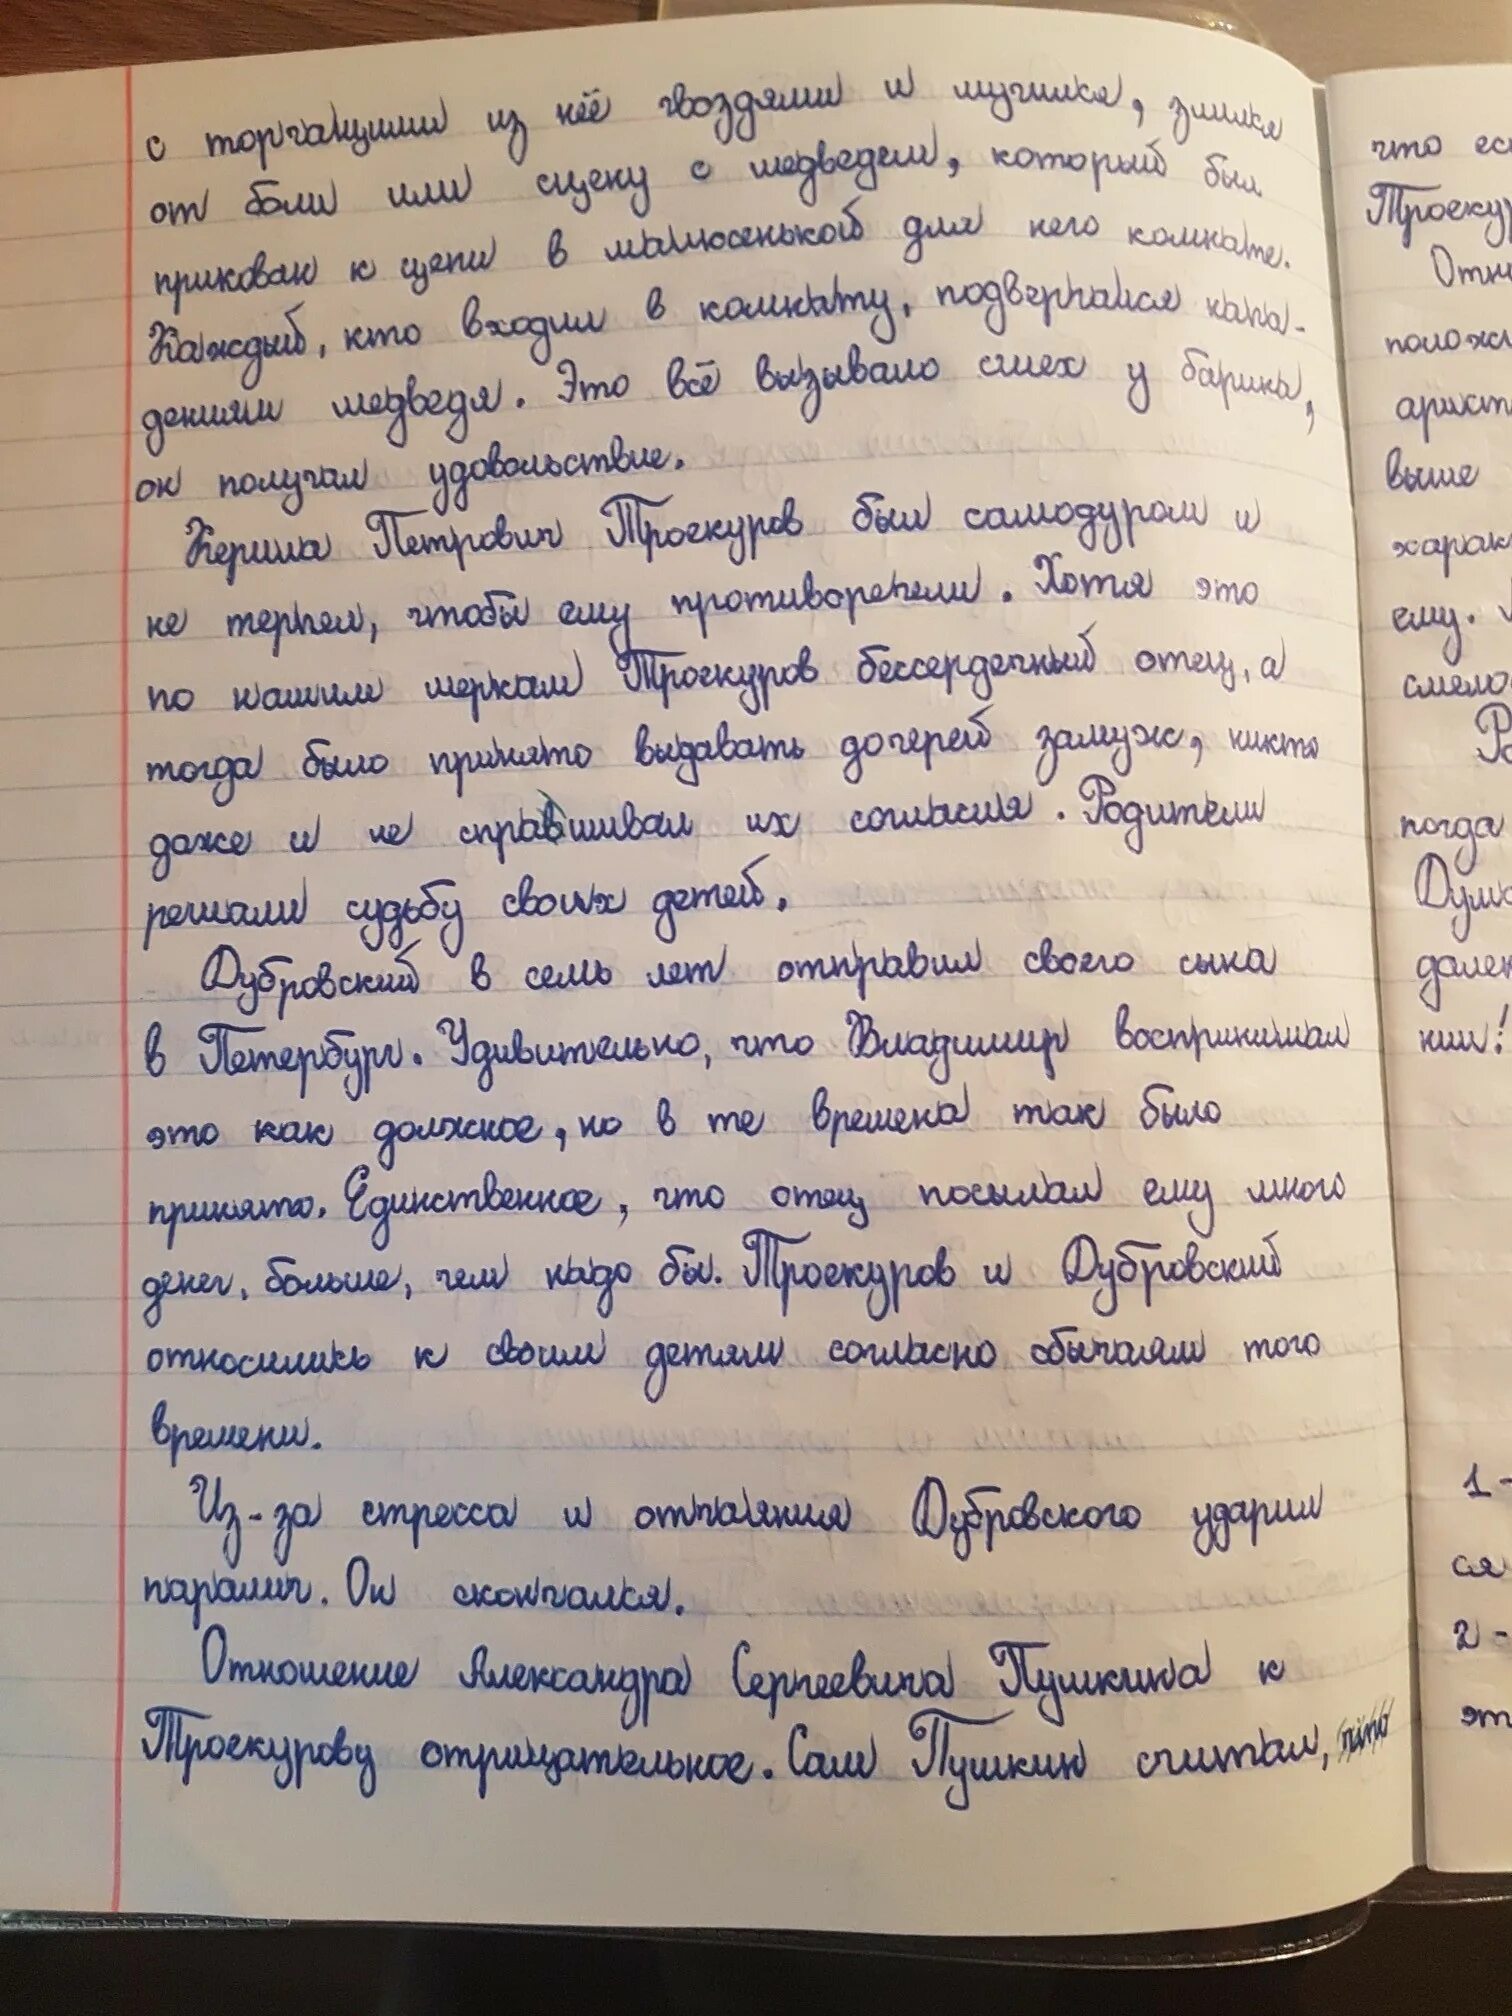 с торчащими из неё гвоздями и мучился, злился
от боли или сцену с медведем, который был
прикован к цепи в малюсенькой для него комнате.
Каждый, кто входил в комнату, подвергался напа-
дениям медведя. Это всё вызывало смех у барина,
он получал удовольствие.
Кирила Петрович Троекуров был самодуром и
не терпел, чтобы ему противоречили. Хотя это
по нашим меркам Троекуров бессердечный отец, а
тогда было принято выдавать дочерей замуж, никто
даже и не спрашивал их согласия. Родители
решали судьбу своих детей.
Дубровский в семь лет отправил своего сына
в Петербург. Удивительно, что Владимир воспринимал
это как должное, но в те времена так было
принято. Единственное, что отец посылал ему много
денег, больше, чем надо бы. Троекуров и Дубровский
относились к своим детям согласно обычаям того
времени.
Из-за стресса и отчаяния Дубровского ударил
паралич. Он скончался.
Отношение Александра Сергеевича Пушкина к
Троекурову отрицательное. Сам Пушкин считал,
что ес
Троекур
Отн
полож
арист
выше
харак
ему.
смело
Ро
когда
Душ
дален
нии!
1-
ся
2-
эт